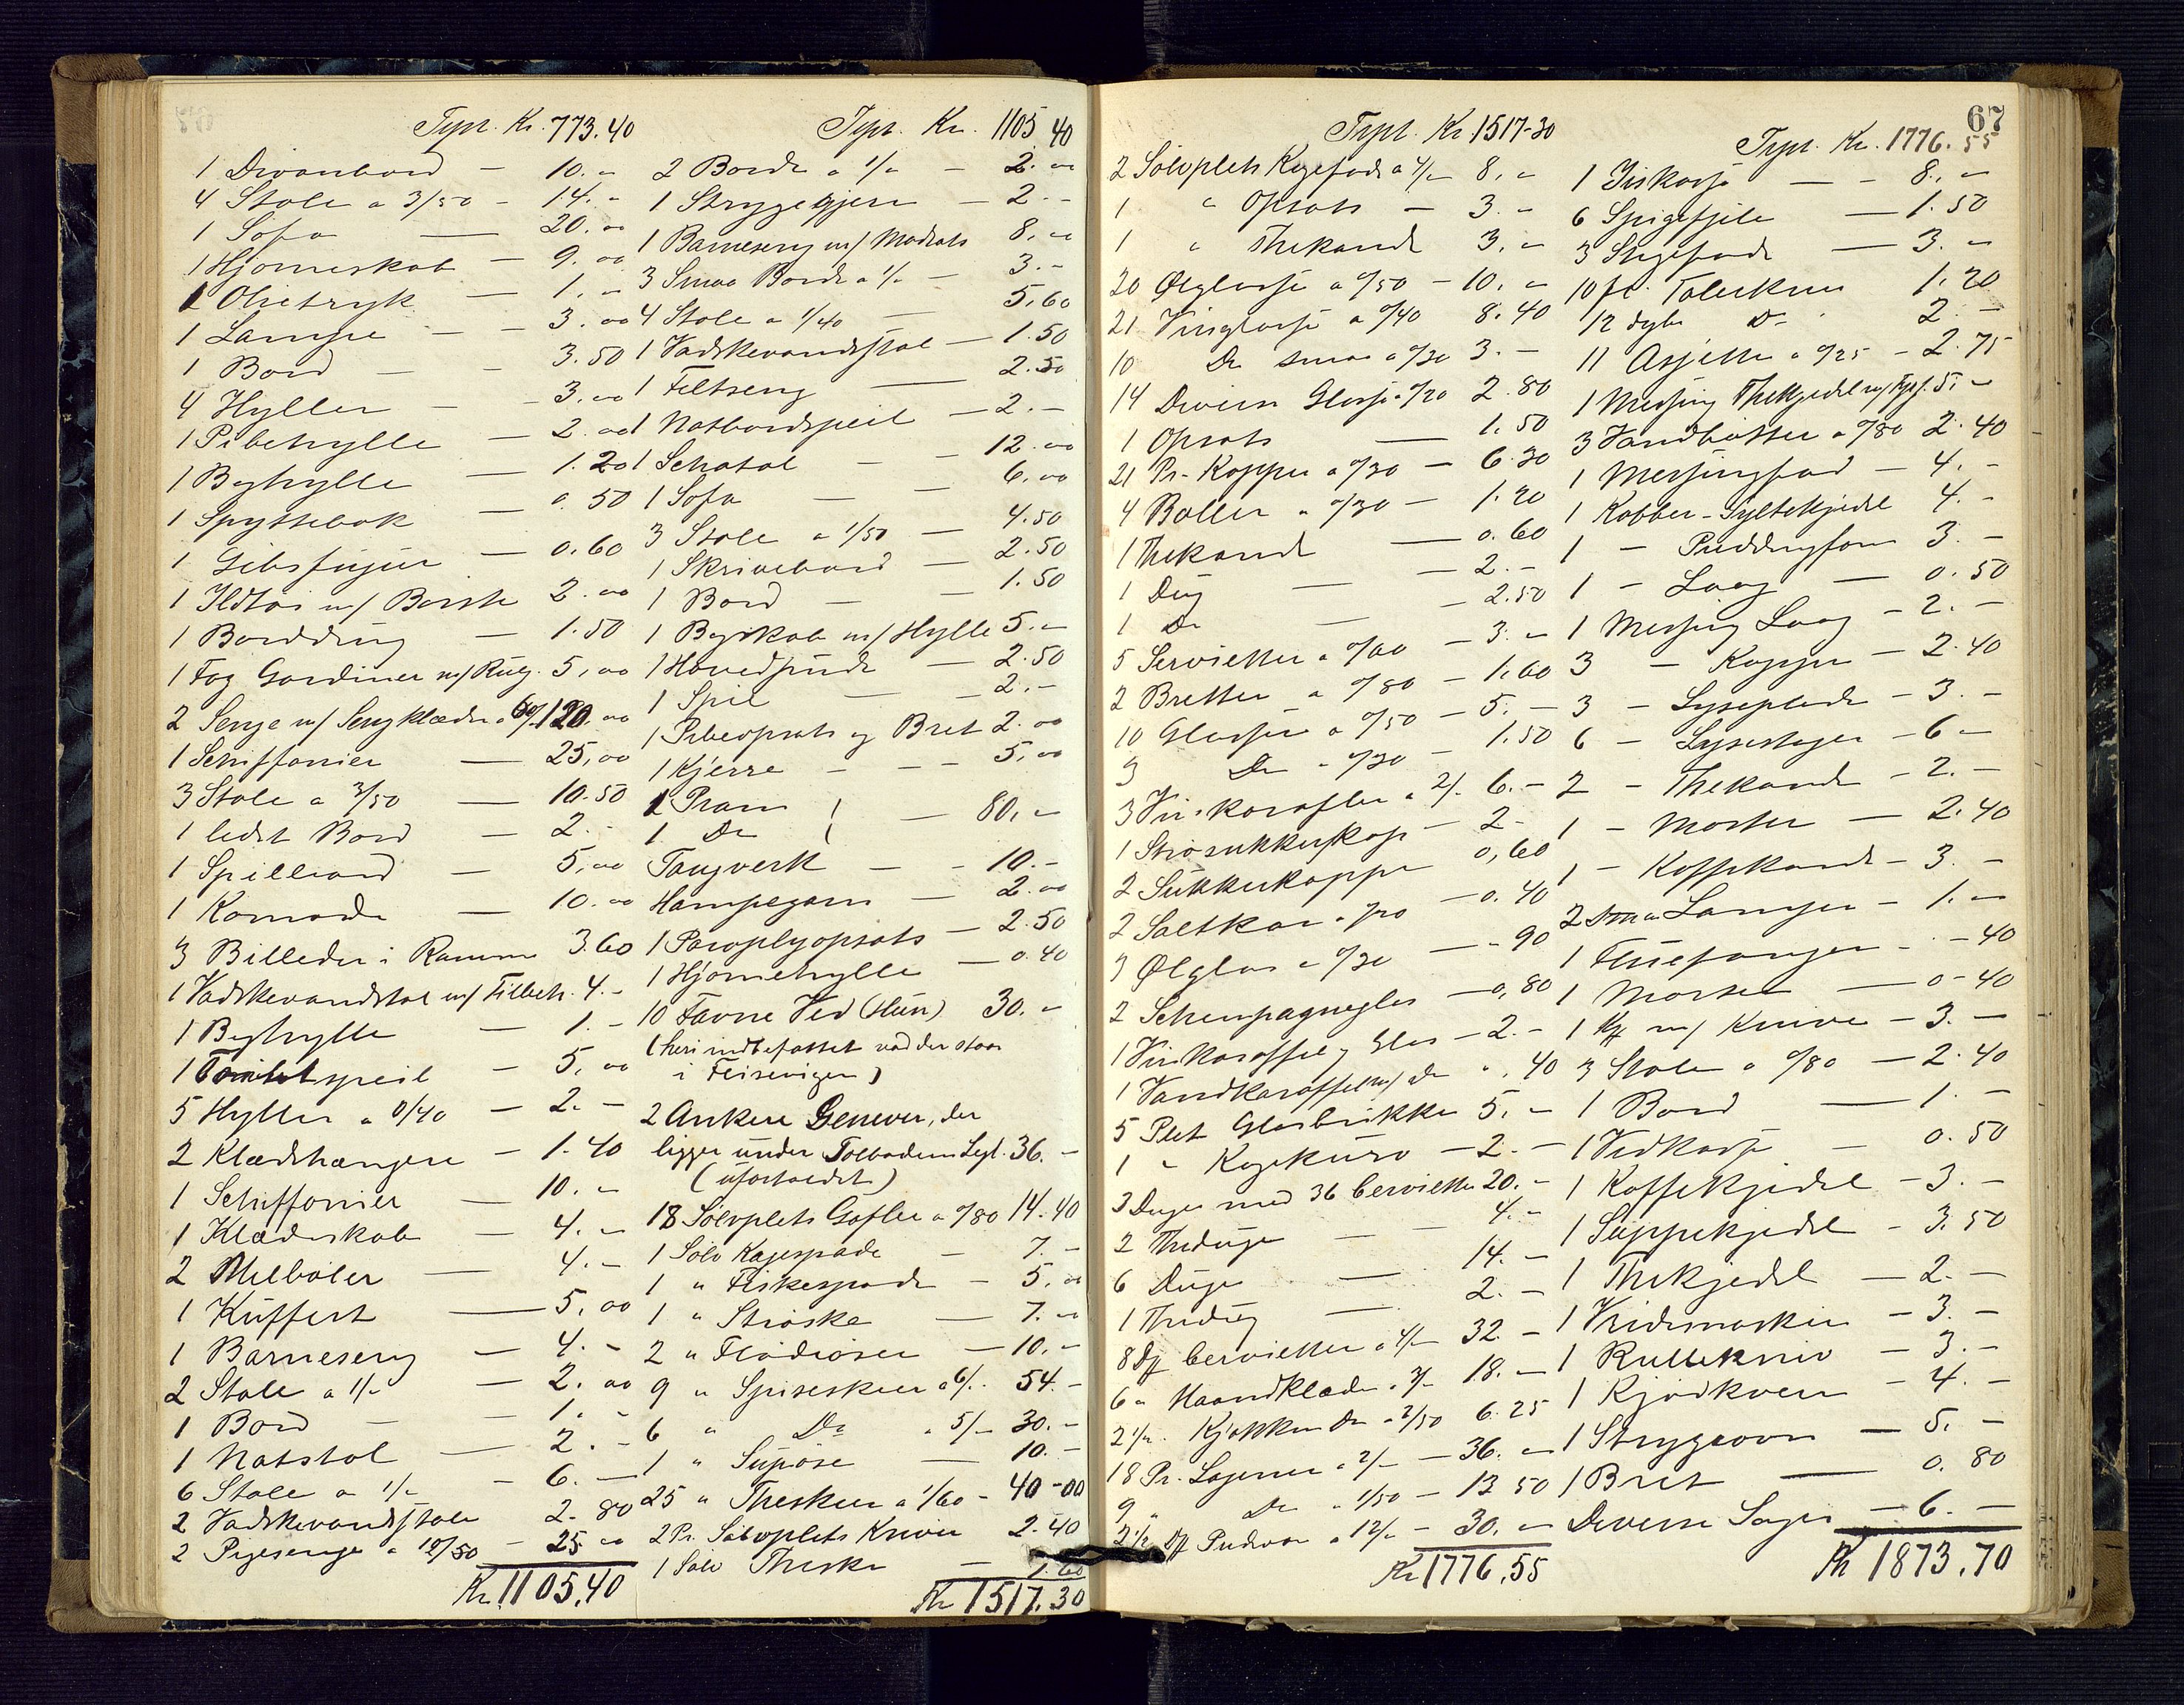 Tspt. Kr. 773.40
1 Divanbord — 10.00
4 Stole a 3/50 - 14. -
1 Sofa — 20.00
1 Hjørneskab — 9.00
1 Olietryk — 1. -
1 Lampe — 3.00
1 Bord — 3.50
4 Hyller — 3.00
1 Pibehylle — 2.00
1 Boghylle — 1.20
1 Spyttebak — 0.50
1 Gibsfigur — 0.60
1 Ildtøi m/ Børste 2.00
1 Borddug — 1.50
1 Fag Gardiner m/ Rulg. 5,00
2 Senge m/ Sengklæder a 60/- 120.00
1 Schiffonier — 25,00
3 Stole a 3/50 — 10.50
1 ledet Bord — 2. -
1 Spillbord — 5,00
1 Komode — 10.00
3 Billeder i Ramme 3.60
1 Vadskevandstol m/ Tilbeh. 4. -
1 Boghylle — 1. -
1 Toiletspeil — 5,00
5 Hyller a 0/40 — 2. -
2 Klædshængere — 1.40
1 Schiffonier — 10. -
1 Klædeskab — 4. -
2 Melbøler — 4. -
1 Kuffert — 5,00
1 Barneseng — 4. -
2 Stole a 1/- — 2.00
1 Bord — 1. -
1 Natstol — 2. -
6 Stole a 1/- — 6. -
2 Vadskevandsstole 2.80
2 Pigesenge a 12/50 - 25.00
Kr. 1105,40
Tspt. Kr. 1105 40
2 Borde a 1/- — 2.00
1 Strygegjern — 2. -
1 Barneseng m/ Madrats 8. -
3 Smaa Borde a 1/- — 3. -
4 Stole a 1/40 — 5,60
1 Vadskevandsstol — 1.50
1 Feltseng — 2.50
1 Natbordspeil — 2. -
1 Schatol — 12.00
1 Sofa — 6.00
3 Stole a 1/50 — 4.50
1 Skrivebord — 2.50
1 Bord — 1.50
1 Bogskab m/ Hylle 5. -
1 Hovedpude — 2.50
1 Spil — 2. -
1 Pibeopsats og Bret 2.00
1 Kjerre — 5,00
1 Pram
1 Do — 80. -
Taugverk — 10. -
Hampegarn — 2.00
1 Paraplyopsats — 2.50
1 Hjørnehylle — 0.40
10 Favne Ved (Hun) 30. -
(heri indbefattet vad der staar
i Fliseviigen)
2 Ankere Genever, der
ligger under Tolbodens Lyl. 36. -
(ufortoldet)
18 Sølvplets Gafler a 0/80 14.40
1 Sølv Kagespade — 7. -
1 " Fiskespade — 5.00
1 " Strøske — 7. -
2 " Flødiøser — 10. -
9 " Spiseskeer a 6/- 54. -
6 " Do a 5/- 30. -
1 " Supøse — 10. -
25 " Theskeer a 1/60 - 40-00
2 Pr. Sølvplets Knive 2.40
1 Sølv Theske — 1.60
Kr 1517.30
67
Tspt. Kr. 1517-30
2 Sølvplets Kagefade a 4/- 8. -
1 " Opsats — 3. -
1 " Thekande 3. -
20 Ølglasse a 0/50 - 10. -
21 Vinglasse a 0/40 8.40
10 Do smaa a 0/30 3. -
14 Diverse Glasse a 0/20 2.80
1 Opsats — 1.50
21 Pr. Kopper a 0/30 — 6.30
4 Boller a 0/30 - 1.20
1 Thekande — 0.60
1 Dug — 2. -
1 Do — 2.50
5 Servietter a 0/60 — 3. -
2 Bretter a 0/80 — 1.60
10 Glasse a 0/50 - 5. -
5 Do a 0/30 - 1.50
3 Vinkarafler a 2/- 6. -
1 Strøsukkerkop - 2. -
2 Sukkerkopper 0,60
2 Saltkar a 0/20 — 0.40
3 Ølglas a 0/30 — - 90
2 Schampagneglas — 0,80
1 Vinkaraffel og Glas - 2. -
1 Vandkaraffel m/ Do " . 40
5 Plet Glasbrikker 5. -
1 " Kagekurv — 2. -
3 Duge med 36 Servietter 20. -
2 Theduge — 4. -
6 Duge — 14. -
1 Thedug — 2. -
8 Dz Servietter a 4/- 32. -
6 " Haandklæder a 3/- 18. -
2 1/2 " Kjøkken Do a 2/50 6.25
18 Pr. Lagener a 2/- — 36. -
9 " Do a 1/50 - 13 50
2 1/2 Dz Pudevar a 12/- - 30. -
Kr 1776.55
Tspt. Kr. 1776.55
1 Fiskasse — 8. -
6 Spigefjele — 1.50
3 Stegefade — 3. -
10 fl. Talerkner 1.20
12 dybe Do 2. -
11 Asjetter a 0/25 - 2.75
1 Messing Thekjedel m/ Fyrf. 5. -
3 Vandbøtter a 0/80 2.40
1 Messingfad — 4. -
1 Kobber-Syltekjedel 4. -
1 — Puddingform 3. -
1 - Laag — 0.50
1 Messing Laag - 2. -
3 — Kopper — 2.40
3 — Lyseplade - 3. -
6 — Lysestager - 6 -
2 - Thekande - 2. -
1 - Morter — 2.40
1 - Kaffekande - 3. -
2 Smaa Lamper - 1. -
1 Fluefanger - . - 40
1 Morter — 0-40
1 Kf m/ Knive - 3. -
3 Stole a 0/80 — 2.40
1 Bord — 1. -
1 Vedkasse — 0.50
1 Kaffekjedel - 3. -
1 Suppekjedel - 3.50
1 Thekjedel — 2. -
1 Vridemaskin - 3. -
1 Rullekniv - 3. -
1 Kjødkvern - 4. -
1 Strygeovn — 5. -
1 Bret — 0.80
Diverse Sager — 6. -
Kr 1873.70